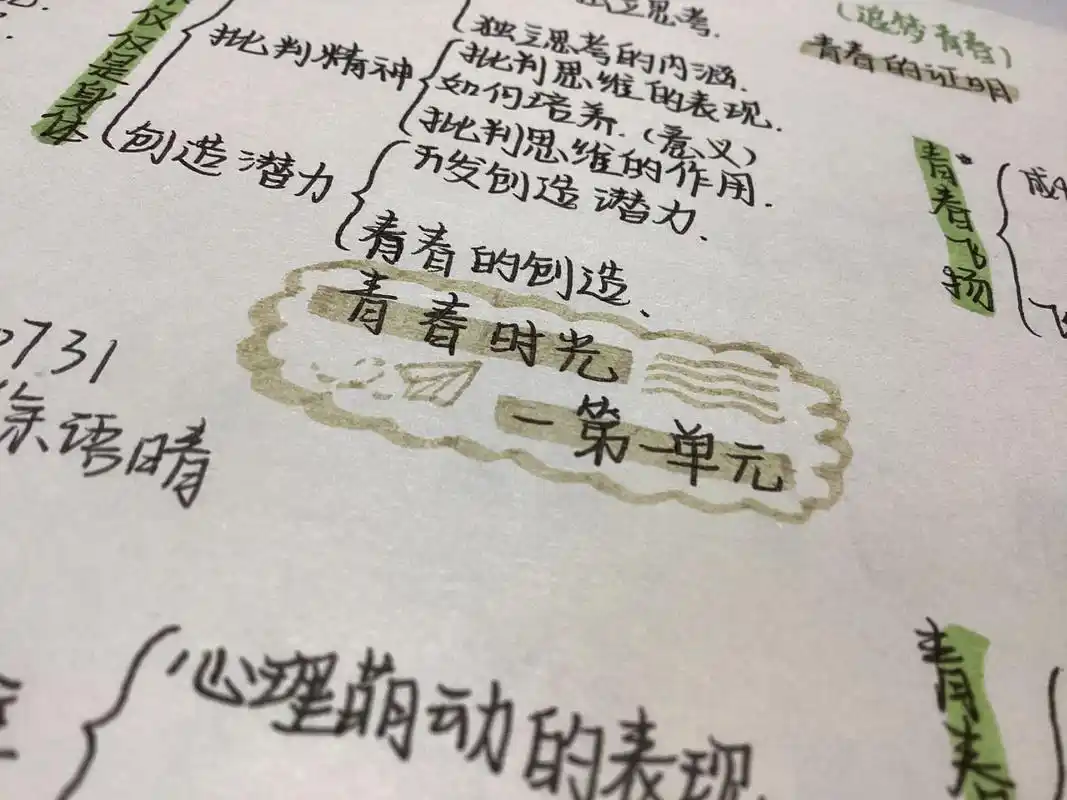 仅仅是身体
批判精神
独立思考的内涵.
批判思维的表现.
如何培养.(意义)
批判思维的作用.
创造潜力
开发创造潜力.
青春的创造.
青春时光
一第一单元
青春的证明
青春飞扬
731
语晴
心理萌动的表现.
青春